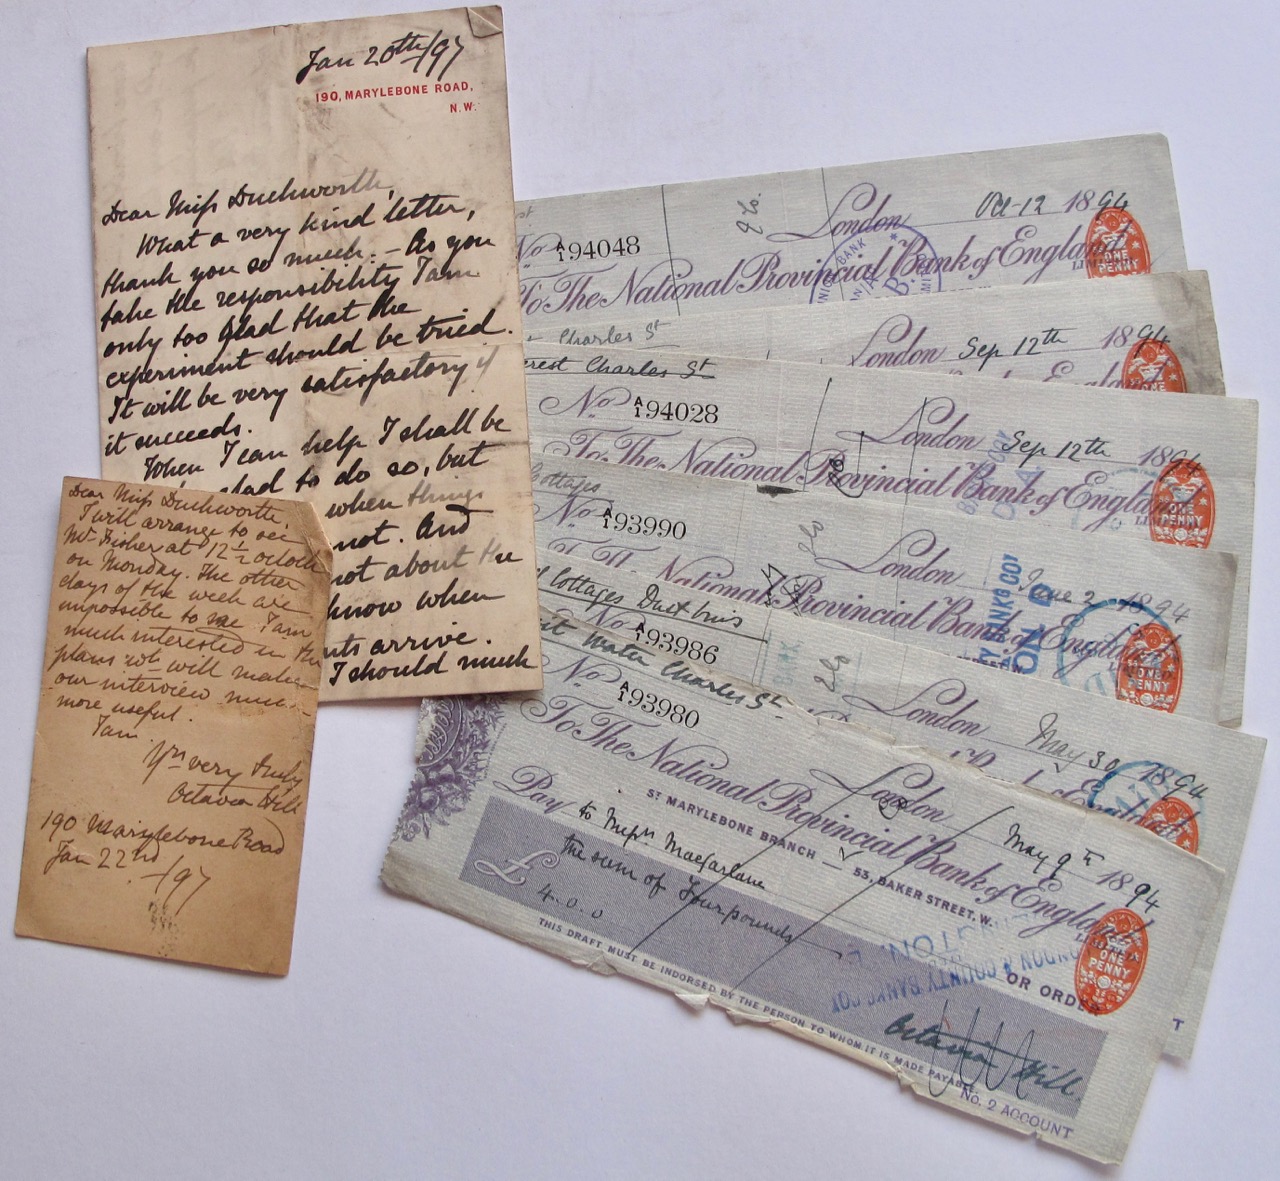 Jan 20th/97
190, MARYLEBONE ROAD,
N.W.
Dear Miss Duckworth,
What a very kind letter,
thank you so much. - As you
take the responsibility I am
only too glad that the
experiment should be tried.
It will be very satisfactory if
it succeeds.
When I can help I shall be
glad to do so, but
when things
not. And
not about the
know when
arrive.
I should much
Dear Miss Duckworth,
I will arrange to see
Mr Fisher at 12½ o'clock
on Monday. The other
days of the week are
impossible to me. I am
much interested in the
plans wh will make
our interview much
more useful.
I am
Yrs very truly
Octavia Hill
190 Marylebone Road
Jan 22nd /97
London Oct 12 1894
No A/1 94048
To The National Provincial Bank of England
LIMITED
ONE
PENNY
Charles St
London Sep 12th 1894
ONE
Charles St
No A/1 94028
London Sep 12th 1894
To The National Provincial Bank of England
ONE
PENNY
Cottages
No A/1 93990
London June 2 1894
National Provincial Bank of England
ONE
PENNY
Cottages Dust bins
No A/1 93986
London May 30 1894
Water Charles St
No A/1 93980
London May 9th 1894
To The National Provincial Bank of England
ST MARYLEBONE BRANCH - 53, BAKER STREET, W.
Pay to Messrs Macfarlane
OR ORDER
the sum of Four pounds
£ 4.0.0
ONE
PENNY
LONDON & COUNTY BANKG COY
Octavia Hill.
THIS DRAFT MUST BE INDORSED BY THE PERSON TO WHOM IT IS MADE PAYABLE.
No. 2 ACCOUNT
T